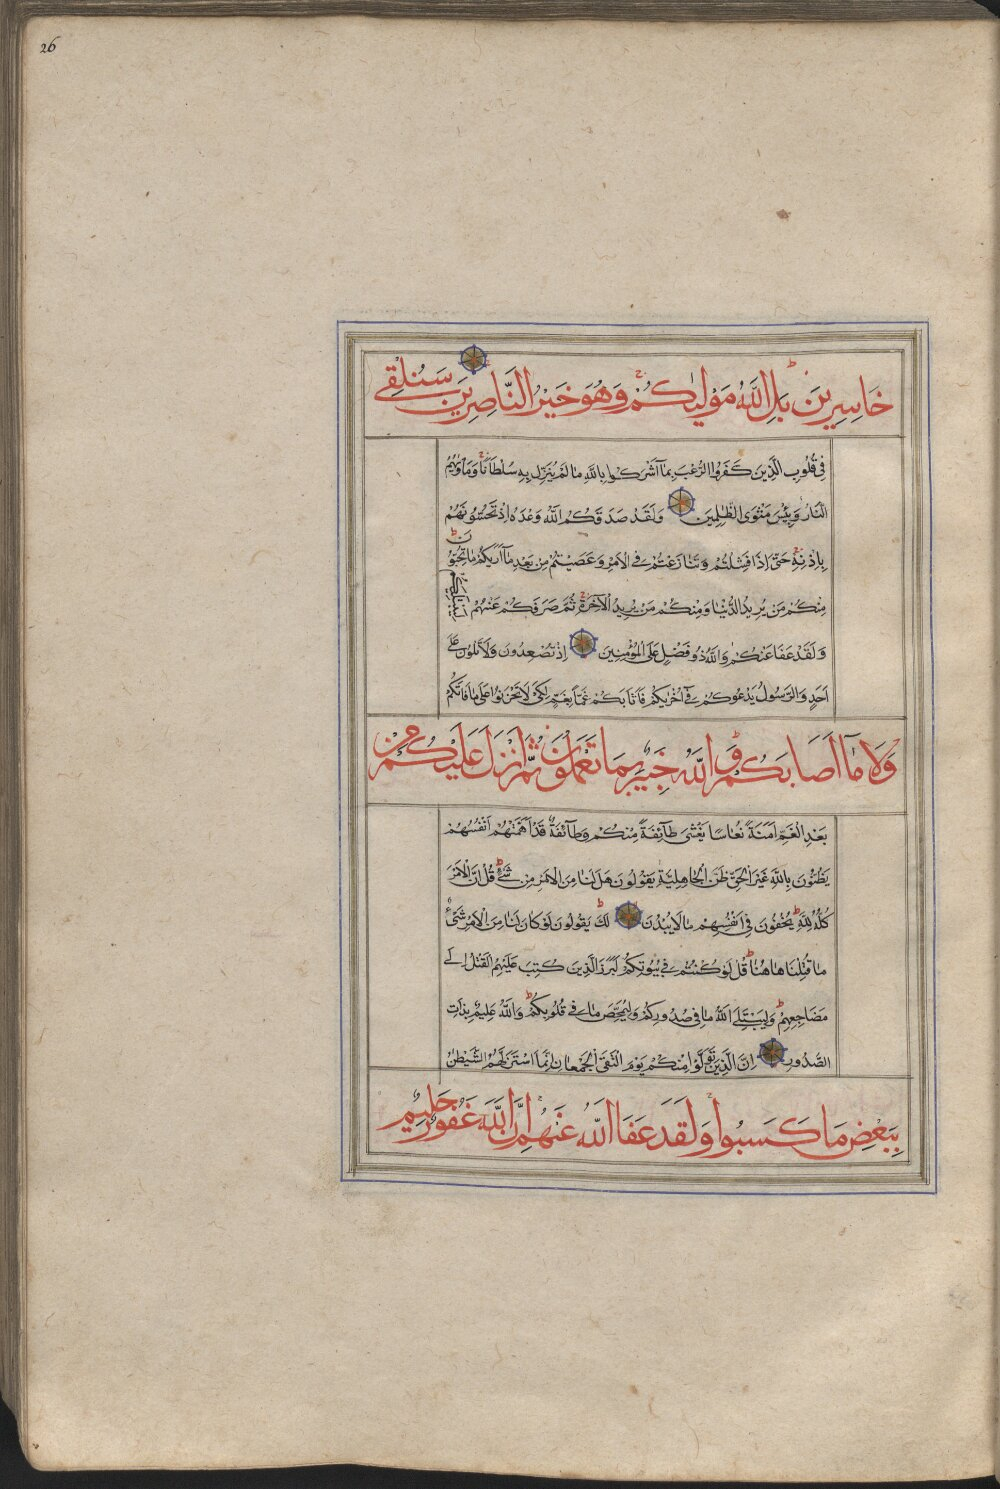 26
خَاسِرِينَ بَلِ اللَّهُ مَوْلَيٰكُمْ وَهُوَ خَيْرُ النَّاصِرِينَ سَنُلْقِي
فِي قُلُوبِ الَّذِينَ كَفَرُوا الرُّعْبَ بِمَا أَشْرَكُوا بِاللَّهِ مَا لَمْ يُنَزِّلْ بِهِ سُلْطَانًا وَمَأْوَيٰهُمُ
النَّارُ وَبِئْسَ مَثْوَى الظّٰلِمِينَ وَلَقَدْ صَدَقَكُمُ اللَّهُ وَعْدَهُ إِذْ تَحُسُّونَهُمْ
بِإِذْنِهِ حَتَّى إِذَا فَشِلْتُمْ وَتَنَازَعْتُمْ فِي الْأَمْرِ وَعَصَيْتُمْ مِنْ بَعْدِ مَا أَرَيٰكُمْ مَا تُحِبُّونَ
مِنْكُمْ مَنْ يُرِيدُ الدُّنْيَا وَمِنْكُمْ مَنْ يُرِيدُ الْآخِرَةَ ثُمَّ صَرَفَكُمْ عَنْهُمْ لِيَبْتَلِيَكُمْ
وَلَقَدْ عَفَا عَنْكُمْ وَاللَّهُ ذُو فَضْلٍ عَلَى الْمُؤْمِنِينَ إِذْ تُصْعِدُونَ وَلَا تَلْوُنَ عَلَى
أَحَدٍ وَالرَّسُولُ يَدْعُوكُمْ فِي أُخْرٰيكُمْ فَأَثَابَكُمْ غَمًّا بِغَمٍّ لِكَيْ لَا تَحْزَنُوا عَلَى مَا فَاتَكُمْ
وَلَا مَا أَصَابَكُمْ وَاللَّهُ خَبِيرٌ بِمَا تَعْمَلُونَ ثُمَّ أَنْزَلَ عَلَيْكُمْ مِنْ
بَعْدِ الْغَمِّ أَمَنَةً نُعَاسًا يَغْشَى طَآئِفَةً مِنْكُمْ وَطَآئِفَةٌ قَدْ أَهَمَّتْهُمْ أَنْفُسُهُمْ
يَظُنُّونَ بِاللَّهِ غَيْرَ الْحَقِّ ظَنَّ الْجَاهِلِيَّةِ يَقُولُونَ هَلْ لَنَا مِنَ الْأَمْرِ مِنْ شَيْءٍ قُلْ إِنَّ الْأَمْرَ
كُلَّهُ لِلَّهِ يُخْفُونَ فِي أَنْفُسِهِمْ مَا لَا يُبْدُونَ لَكَ يَقُولُونَ لَوْ كَانَ لَنَا مِنَ الْأَمْرِ شَيْءٌ
مَا قُتِلْنَا هَاهُنَا قُلْ لَوْ كُنْتُمْ فِي بُيُوتِكُمْ لَبَرَزَ الَّذِينَ كُتِبَ عَلَيْهِمُ الْقَتْلُ إِلَى
مَضَاجِعِهِمْ وَلِيَبْتَلِيَ اللَّهُ مَا فِي صُدُورِكُمْ وَلِيُمَحِّصَ مَا فِي قُلُوبِكُمْ وَاللَّهُ عَلِيمٌ بِذَاتِ
الصُّدُورِ إِنَّ الَّذِينَ تَوَلَّوْا مِنْكُمْ يَوْمَ الْتَقَى الْجَمْعَانِ إِنَّمَا اسْتَزَلَّهُمُ الشَّيْطٰنُ
بِبَعْضِ مَا كَسَبُوا وَلَقَدْ عَفَا اللَّهُ عَنْهُمْ إِنَّ اللَّهَ غَفُورٌ حَلِيمٌ